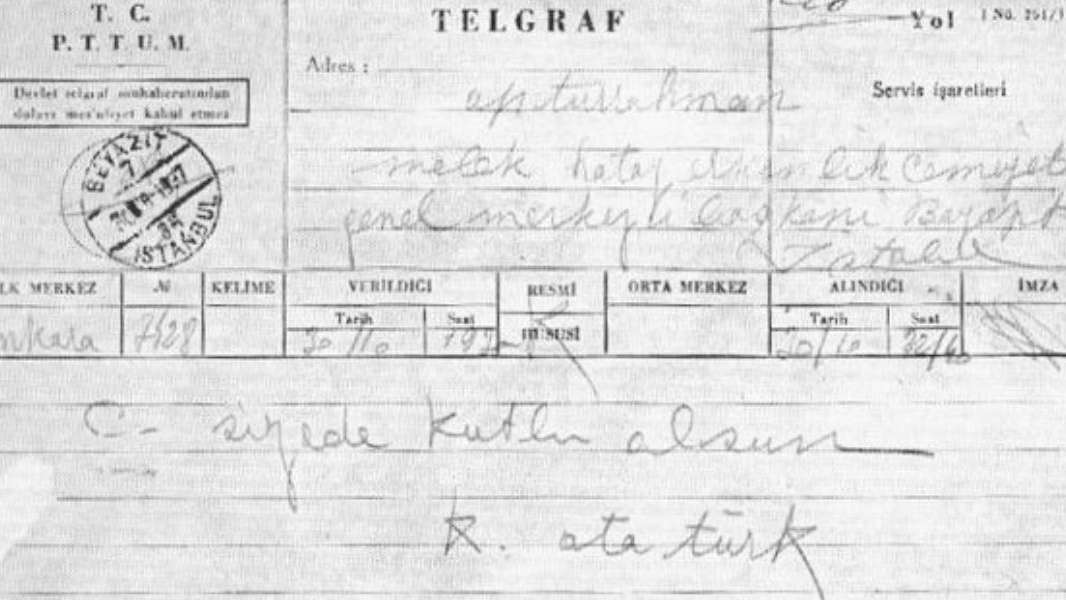 T. C.
P. T. T. U. M.
Devlet telgraf muhaberatından
dolayı mes'uliyet kabul etmez
BEYAZIT
7
İSTANBUL
TELGRAF
Adres :
aptullahman
melek hatay erkenlik Cemiyet
genel merkezi başkanı Bayazıt
Yol
Servis işaretleri
LK MERKEZ
№
KELİME
VERİLDİĞİ
Tarih
Saat
RESMİ
HUSUSİ
ORTA MERKEZ
ALINDIĞI
Tarih
Saat
İMZA
nkara
7128
30/10
C- sizede kutlu olsun
K. ata türk